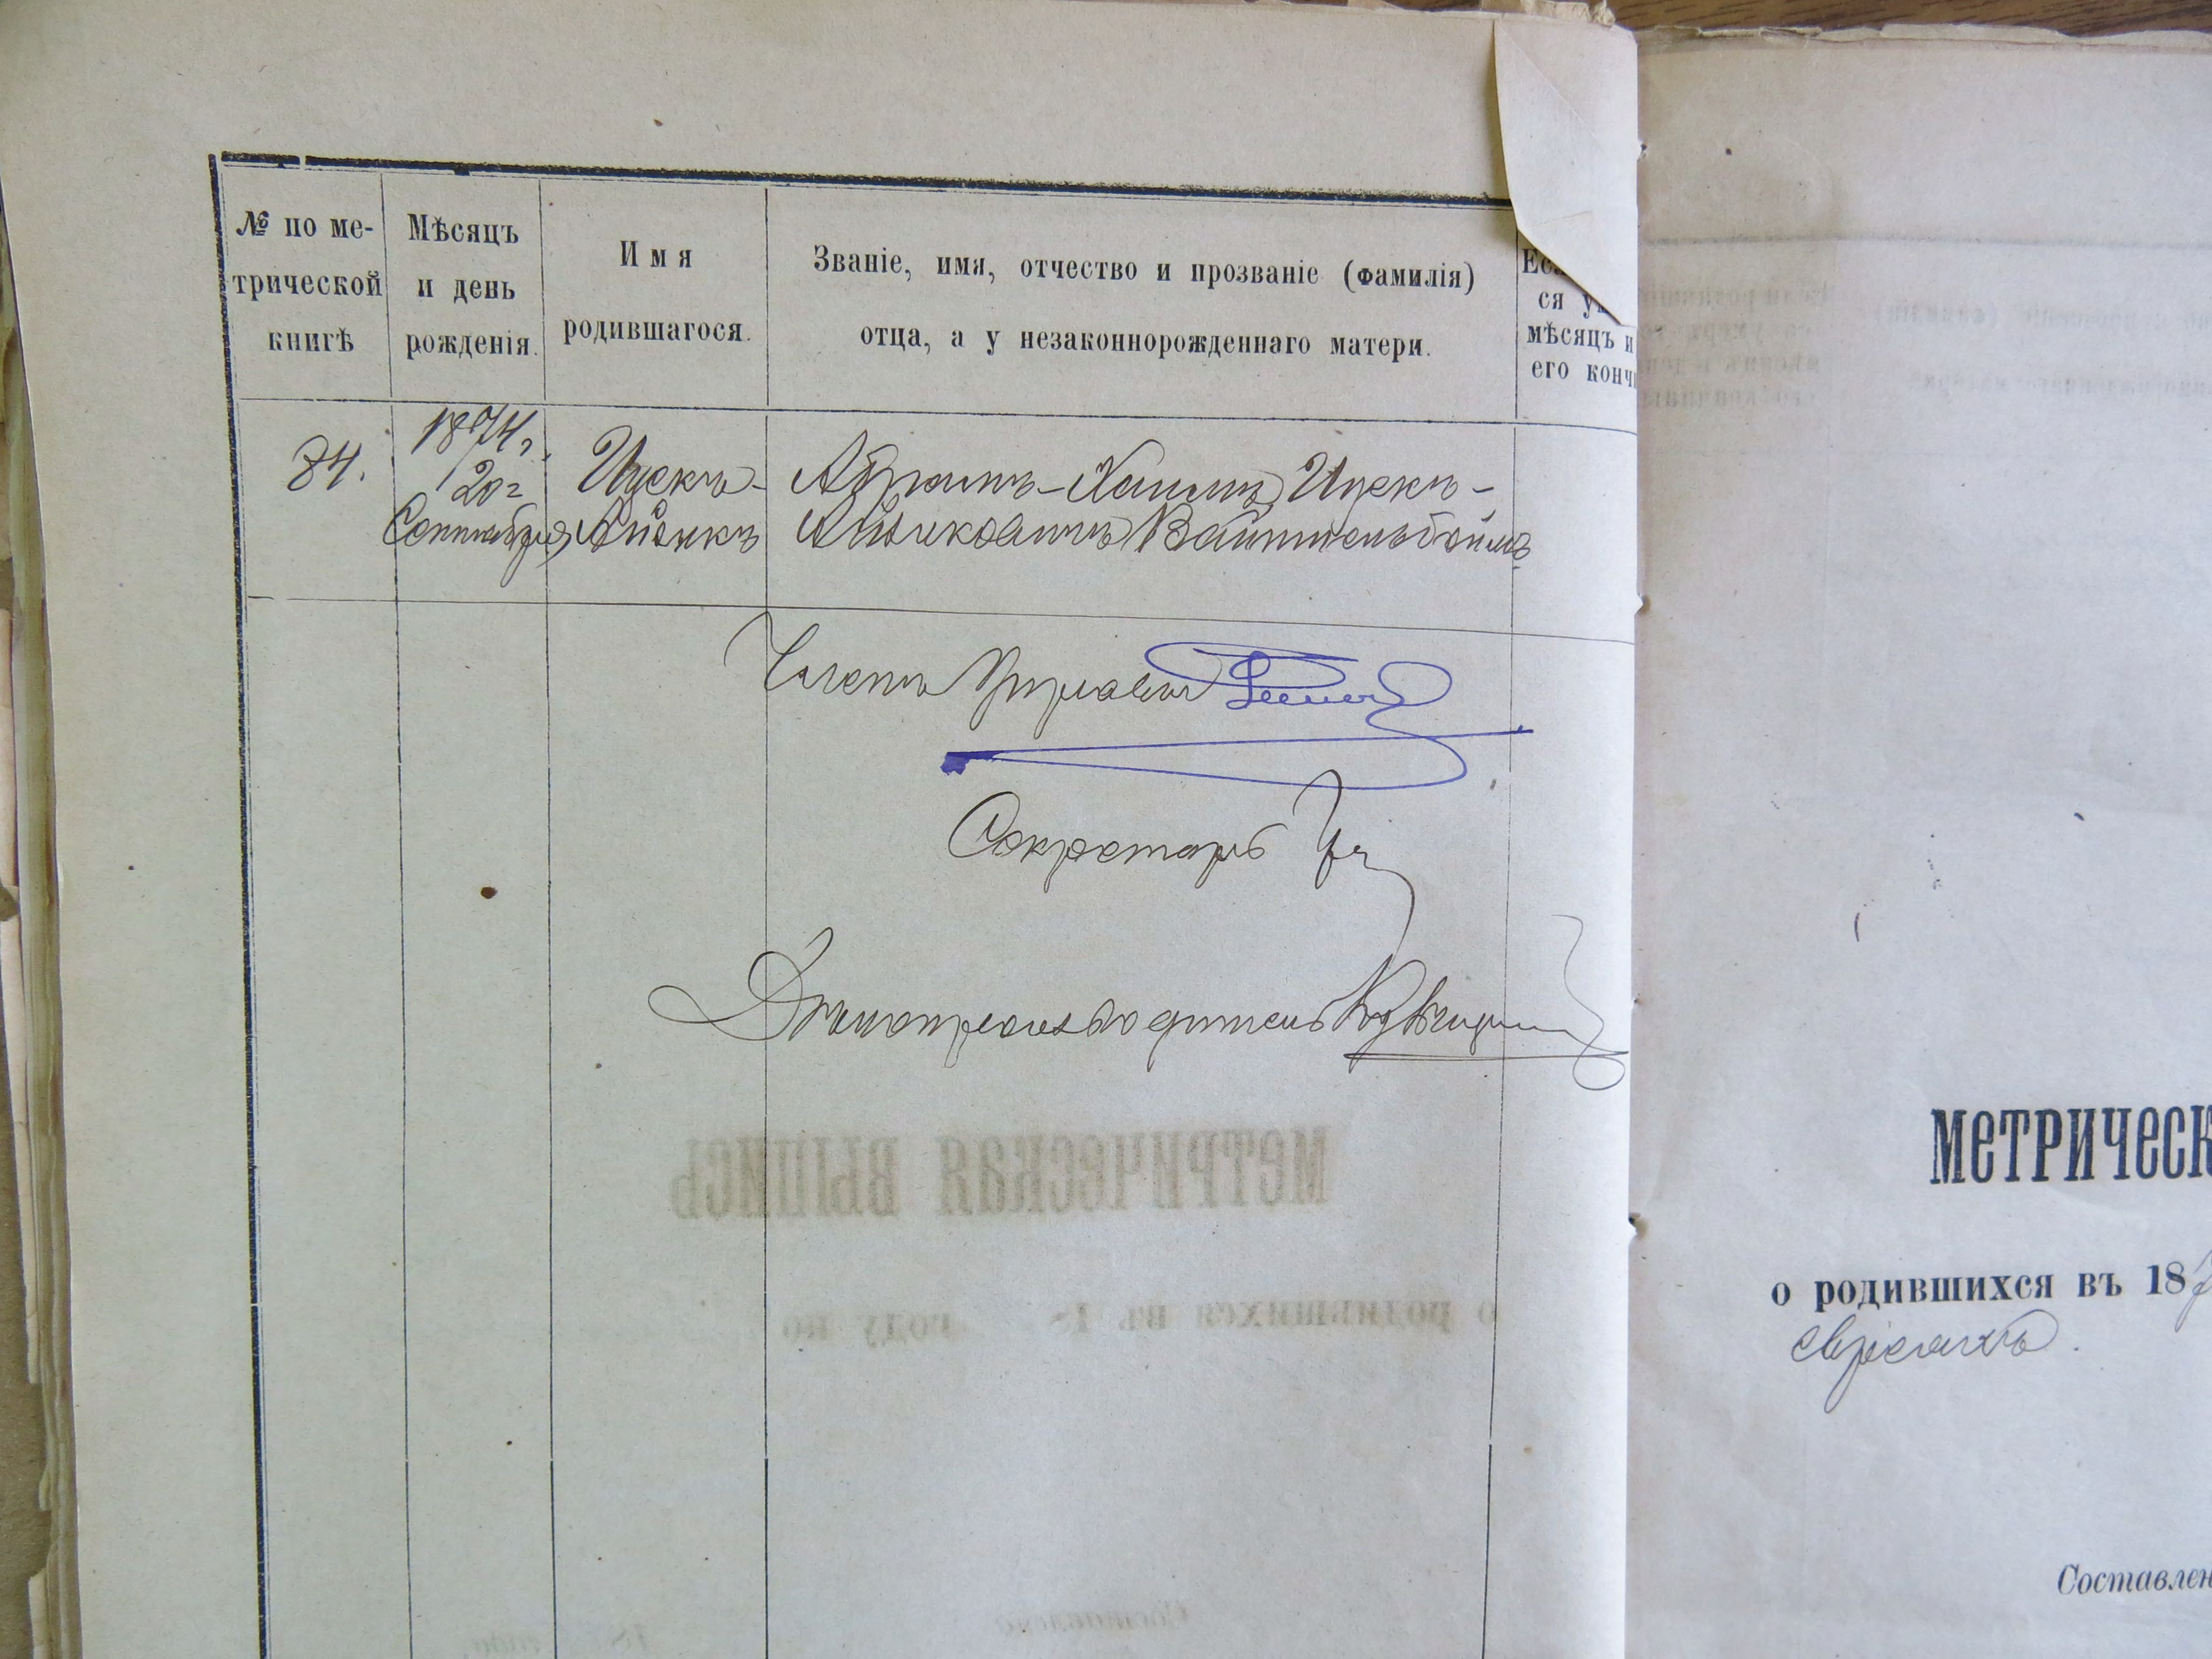 № по ме-
трической
книгѣ
Мѣсяцъ
и день
рожденія.
Имя
родившагося.
Званіе, имя, отчество и прозваніе (фамилія)
отца, а у незаконнорожденнаго матери.
ся
мѣсяцъ и
его
84.
1874 г.
20 г
Сентября
Ицекъ-
Айзикъ
Абрамъ-Хаимъ Ицекъ-
Айзиковичъ Вайтельбоймъ
Членъ Управы
Секретарь
Дѣлопроизводитель
МЕТРИЧЕСКАЯ ВЫПИСЬ
о родившихся въ 18 году по
МЕТРИЧЕСК
о родившихся въ 187
евреяхъ.
Составлен